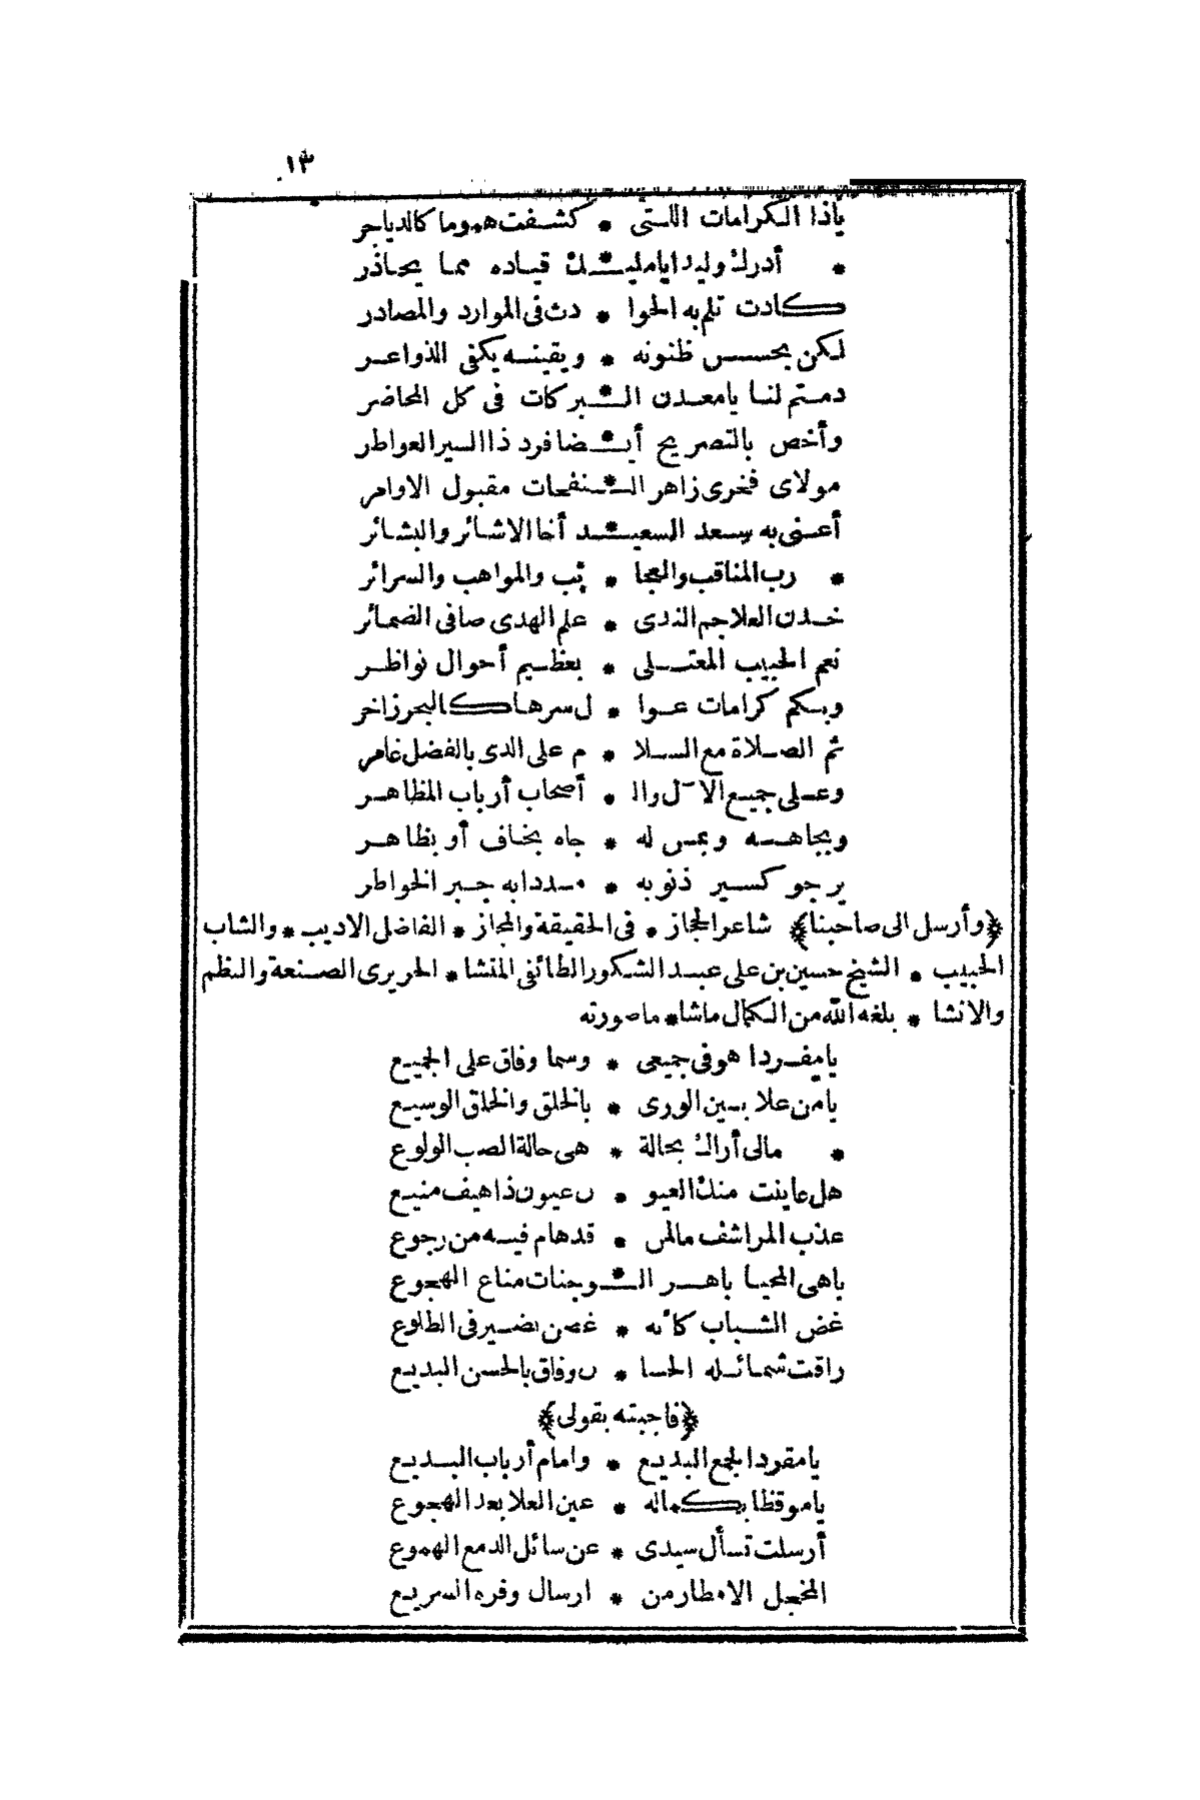 ١٣
ياذا الكرامات اللتى * كشفت هموما كالدياجر
* أدرك وليدا ياملیـ*ـك قياده مما يحاذر
كادت تلم به الحوا * دث فى الموارد والمصادر
لكن بحسن ظنونه * ويقينه يكفى الذواعر
دمتم لنا يا معدن الـ*ـبركات فى كل المحاضر
وأخص بالتصريح أيـ*ـضا فرد ذا السير العواطر
مولاى فخرى زاهر الـ*ـنفحات مقبول الاوامر
أعنى به سعد السعيـ*ـد أخا الاشائر والبشائر
* رب المناقب والعجا * ئب والمواهب والسرائر
خدن العلا جم الندى * علم الهدى صافى الضمائر
نعم الحبيب المعتلى * بعظيم أحوال نواظر
وبكم كرامات عوا * ل سرها كالبحر زاخر
ثم الصلاة مع السلا * م على الذى بالفضل غامر
وعلى جميع الآل وال * أصحاب أرباب المظاهر
وبجاهه وبمن له * جاه يخاف أو يظاهر
يرجو كسير ذنوبه * مددا به جبر الخواطر
﴿وأرسل الى صاحبنا﴾ شاعر الحجاز * فى الحقيقة والمجاز * الفاضل الاديب * والشاب
الحبيب * الشيخ حسين بن على عبد الشكور الطائفى المنشا * الحريرى الصنعة والنظم
والانشا * بلغه الله من الكمال ماشا * ماصورته
يا مفردا هو فى جميعى * وسما وفاق على الجميع
يا من علا بين الورى * بالخلق والخلق الوسيع
* مالى أراك بحالة * هى حالة الصب الولوع
هل عاينت منك العيو * ن عيون ذا هيف منيع
عذب المراشف مالمن * قد هام فيه من رجوع
باهى المحيا باهر الـ*ـوجنات مناع الهجوع
غض الشباب كأنه * غصن نضير فى الطلوع
راقت شمائله الحسا * ن وفاق بالحسن البديع
﴿فاجبته بقولى﴾
يا مفردا لجمع البديع * وامام أرباب البديع
يا موقظا بكماله * عين العلا بعد الهجوع
أرسلت تسأل سيدى * عن سائل الدمع الهموع
المخجل الامطار من * ارسال وفره السريع